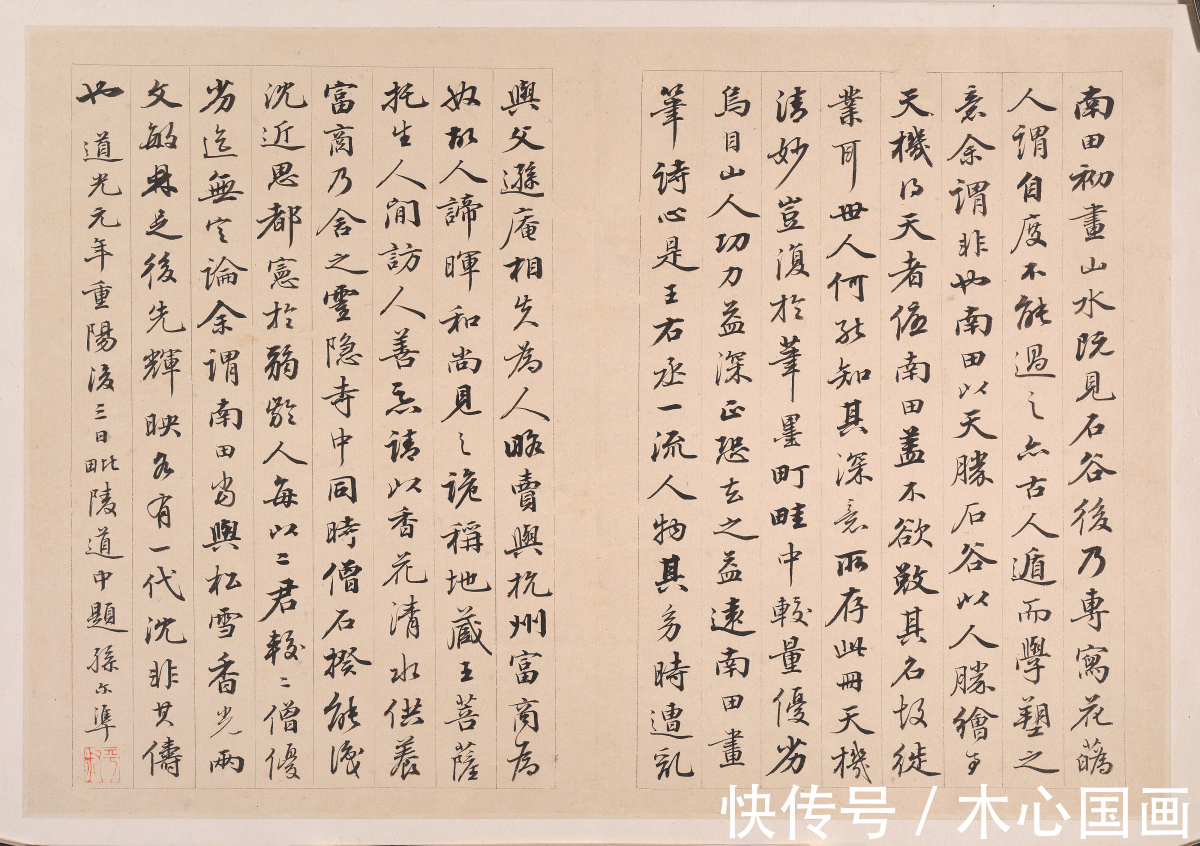 南田初畫山水既見石谷後乃專寫花蘤
人謂自度不能過之亦古人遁而學塑之
意余謂非也南田以天勝石谷以人勝繪事
天機得天者優南田蓋不欲敵其名故徙
業耳世人何能知其深意所存此冊天機
清妙豈復於筆墨町畦中較量優劣
烏目山人功力益深正恐去之益遠南田畫
筆詩心是王右丞一流人物其身時遭乱
與父遜庵相失為人略賣與杭州富商為
奴故人諦暉和尚見之詭稱地藏王菩薩
托生人間訪人善惡請以香花清水供養
富商乃舍之靈隐寺中同時僧石揆能識
沈近思都憲於弱齡人每以二君較二僧優
劣迄無定論余謂南田當與松雪香光兩
文敏長足後先輝映各有一代沈非其儔
也 道光元年重陽後三日毗陵道中題 孫尔準
快传号 / 木心国画